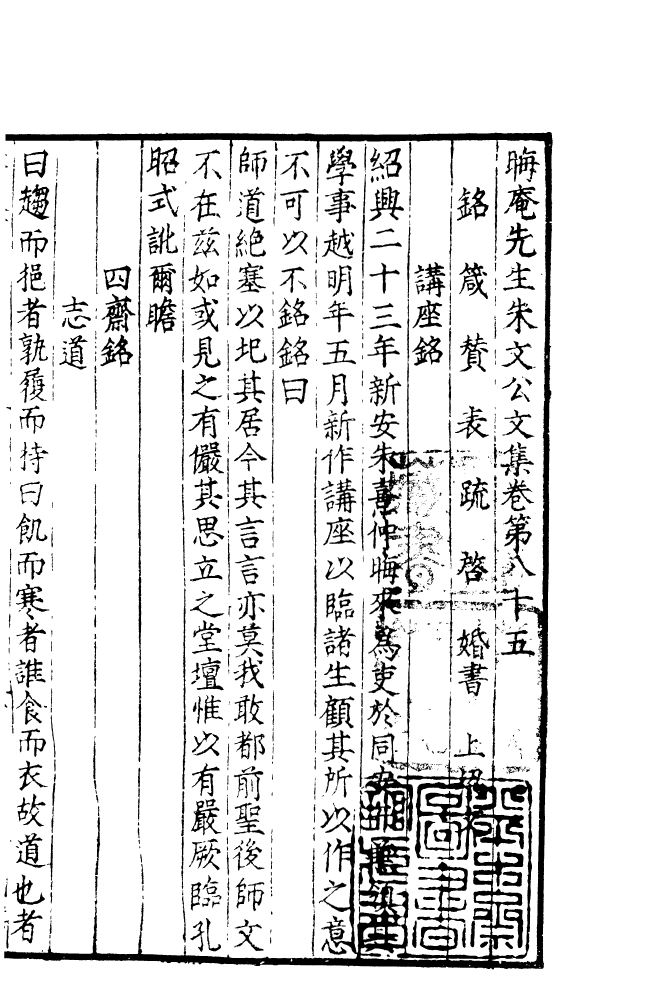 晦庵先生朱文公文集卷第八十五
銘 箴 賛 表 䟽 啓 婚書 上梁文
講座銘
紹興二十三年新安朱熹仲晦來爲吏於同安而兼領
學事越明年五月新作講座以臨諸生顧其所以作之意
不可以不銘銘曰
師道絶塞以圯其居今其言言亦莫我敢都前聖後師文
不在茲如或見之有儼其思立之堂壇惟以有嚴厥臨孔
昭式訛爾瞻
四齋銘
志道
曰趨而挹者孰履而持曰飢而寒者誰食而衣故道也者